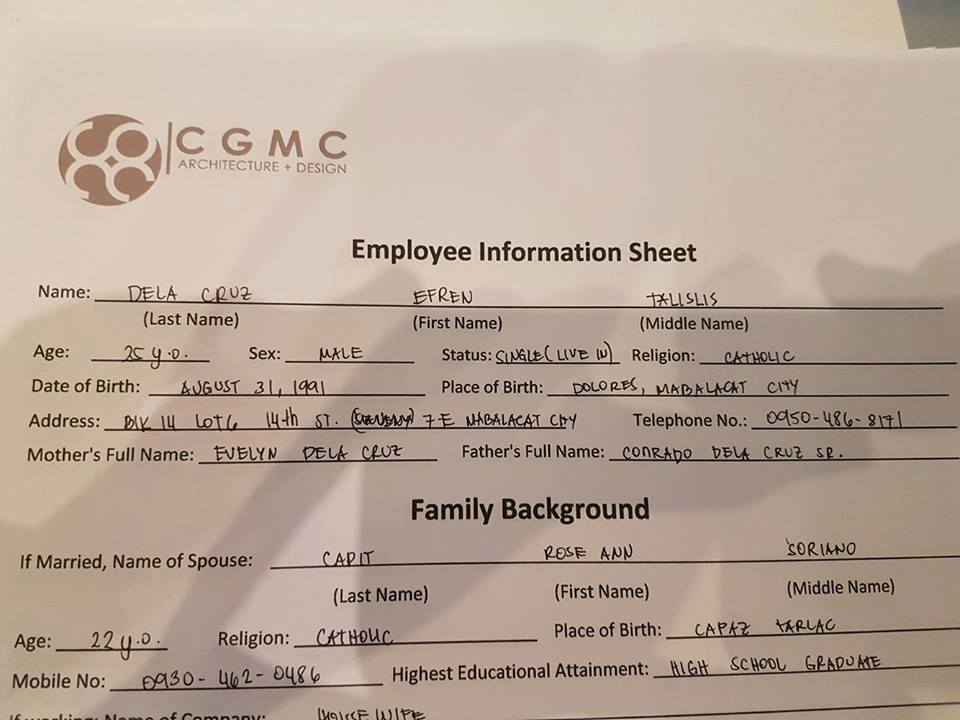 CGMC
ARCHITECTURE + DESIGN
Employee Information Sheet
Name: DELA CRUZ EFREN TALISLIS
(Last Name) (First Name) (Middle Name)
Age: 25 y.o. Sex: MALE Status: SINGLE (LIVE IN) Religion: CATHOLIC
Date of Birth: AUGUST 31, 1991 Place of Birth: DOLORES, MABALACAT CITY
Address: BLK 14 LOT 6 14th ST. 7E MABALACAT CITY Telephone No.: 0950-486-8171
Mother's Full Name: EVELYN DELA CRUZ Father's Full Name: CONRADO DELA CRUZ SR.
Family Background
If Married, Name of Spouse: CAPIT ROSE ANN SORIANO
(Last Name) (First Name) (Middle Name)
Age: 22 y.o. Religion: CATHOLIC Place of Birth: CAPAZ TARLAC
Mobile No: 0930-462-0486 Highest Educational Attainment: HIGH SCHOOL GRADUATE
If working: Name of Company: HOUSE WIFE